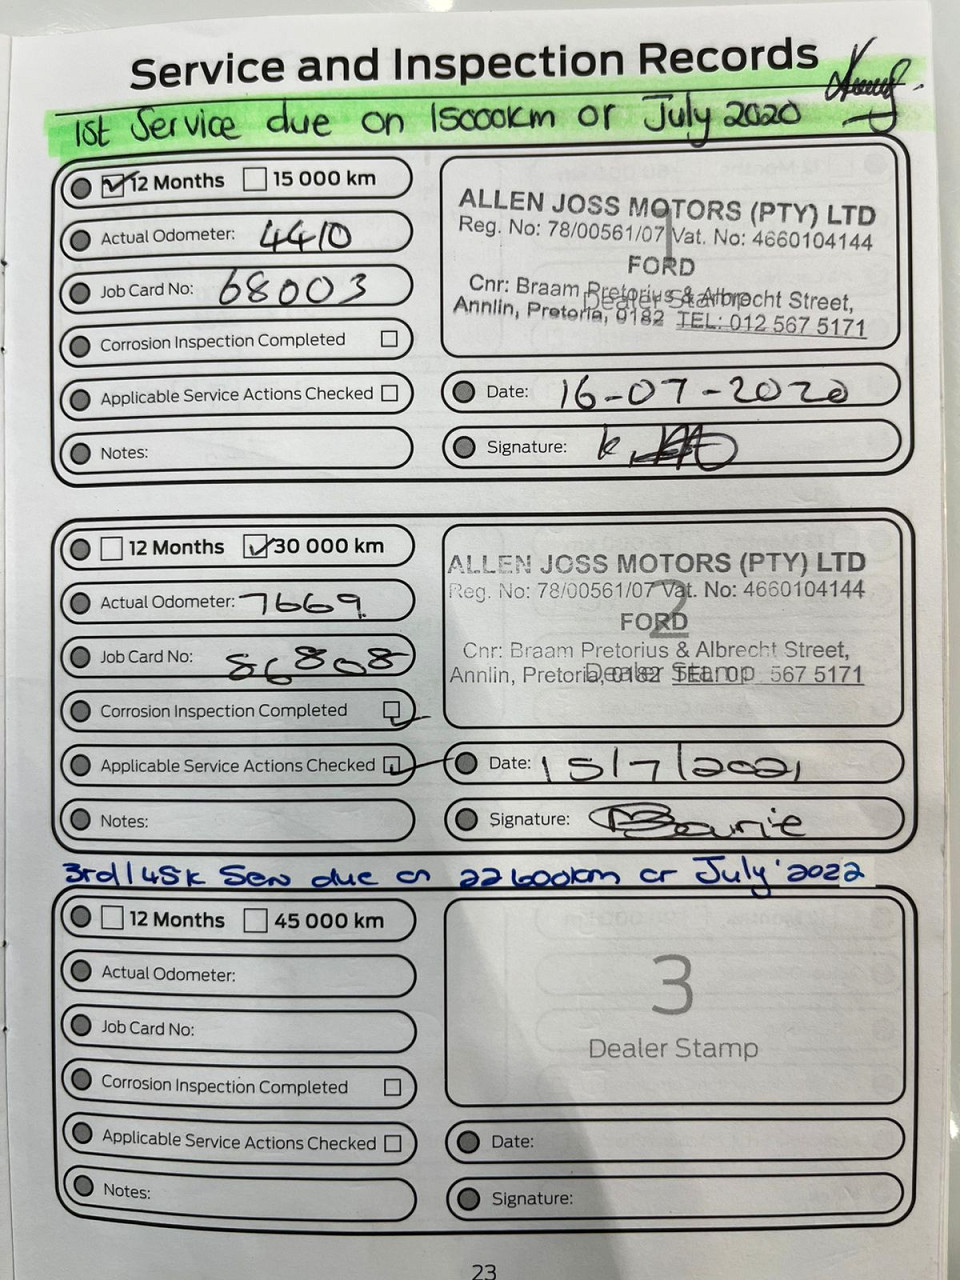 Service and Inspection Records
1st Service due on 15000km or July 2020
12 Months 15 000 km
Actual Odometer: 4410
Job Card No: 68003
Corrosion Inspection Completed
Applicable Service Actions Checked
Notes:
1
Dealer Stamp
ALLEN JOSS MOTORS (PTY) LTD
Reg. No: 78/00561/07 Vat. No: 4660104144
FORD
Cnr: Braam Pretorius & Albrecht Street,
Annlin, Pretoria, 0182 TEL: 012 567 5171
Date: 16-07-2020
Signature:
12 Months 30 000 km
Actual Odometer: 7669
Job Card No: 86808
Corrosion Inspection Completed
Applicable Service Actions Checked
Notes:
2
Dealer Stamp
ALLEN JOSS MOTORS (PTY) LTD
Reg. No: 78/00561/07 Vat. No: 4660104144
FORD
Cnr: Braam Pretorius & Albrecht Street,
Annlin, Pretoria, 0182 TEL: 567 5171
Date: 15/7/2021
Signature:
3rd/45k Serv due on 22600km or July'2022
12 Months 45 000 km
Actual Odometer:
Job Card No:
Corrosion Inspection Completed
Applicable Service Actions Checked
Notes:
3
Dealer Stamp
Date:
Signature:
23